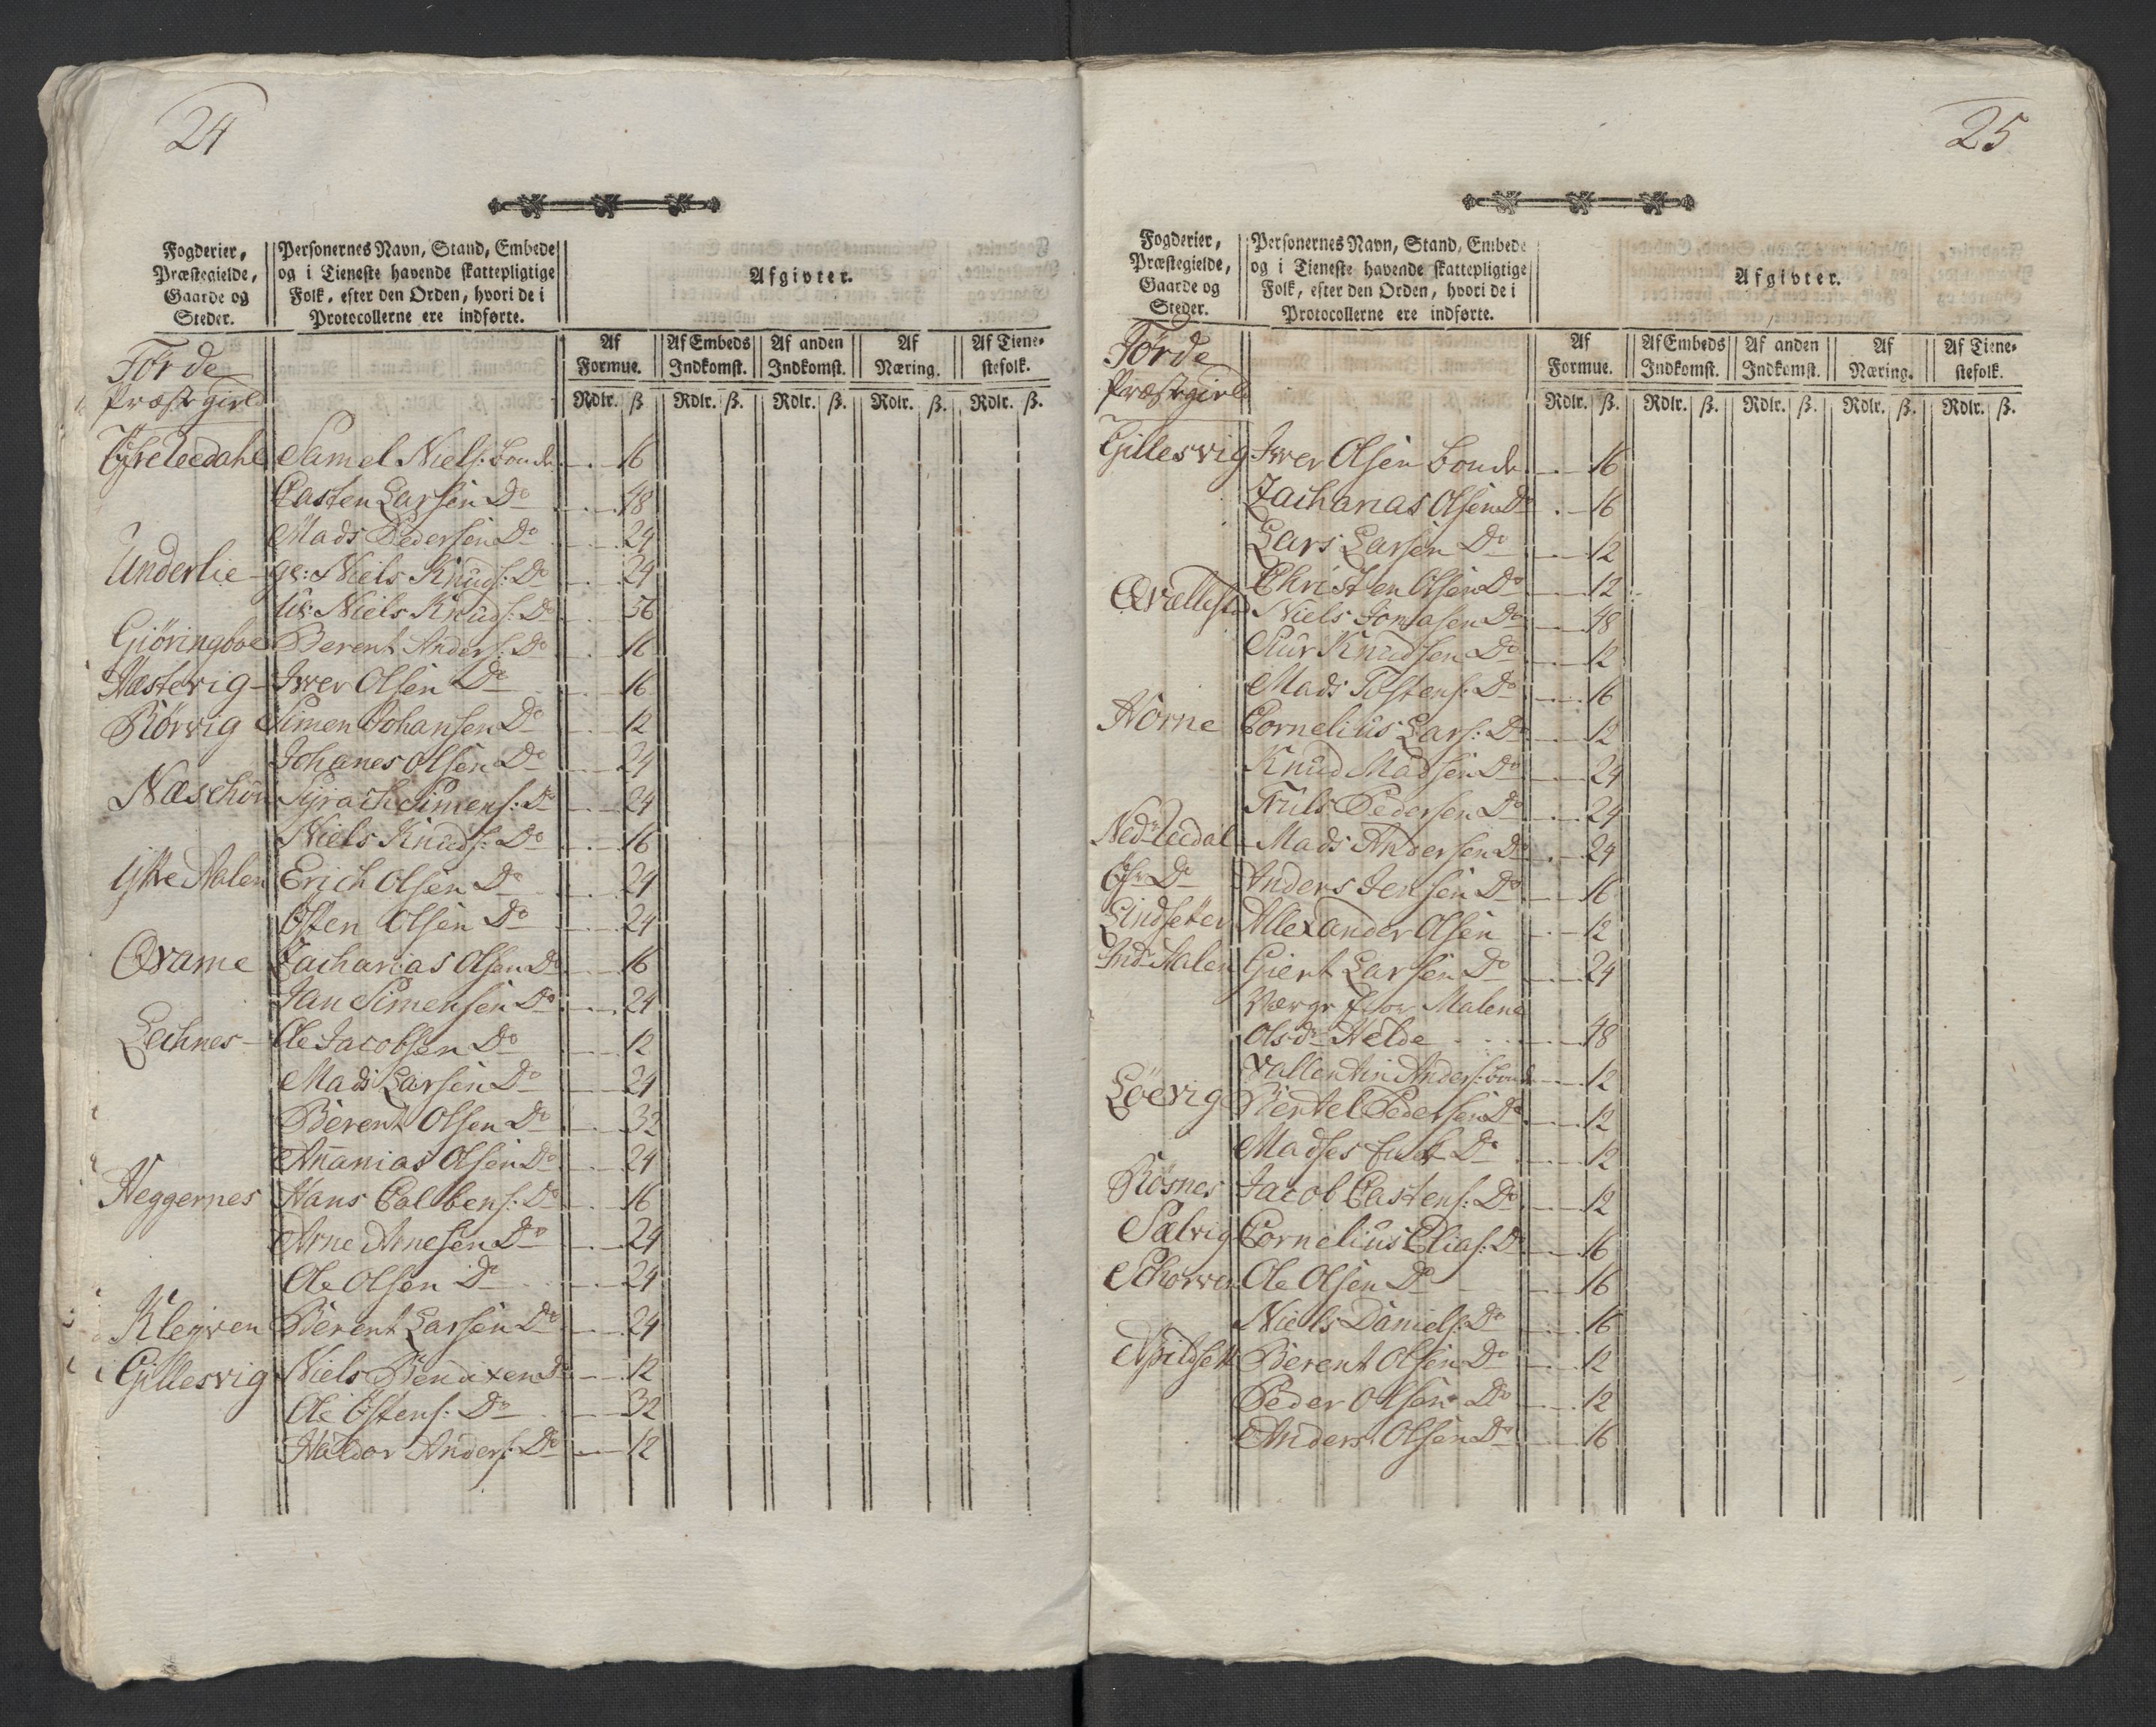 24
Fogderier,
Præstegielde,
Gaarde og
Steder.
Personernes Navn, Stand, Embede
og i Tieneste havende skattepligtige
Folk, efter den Orden, hvori de i
Protocollerne ere indførte.
Afgivter.
Af Formue. Af Embeds Indkomst. Af anden Indkomst. Af Næring. Af Tiene-stefolk.
Rdlr. ß Rdlr. ß. Rdlr. ß. Rdlr. ß. Rdlr. ß.
Førde
Præstgield
Samel Niels: bonde 16
Casten Larsen Do 48
Mads Pedersen Do 24
Underlie gl: Niels Knuds: Do 24
Niels Knuds: Do 56
Giöringboe Berent Anders: Do 16
Næstevig Iver Olsen Do 16
Rörvig Simen Johansen Do 12
Johanes Olsen Do 24
Simens: Do 24
Niels Knuds: Do 16
Ytre Aalen Erich Olsen Do 24
Osten Olsen Do 24
Qvame Zacharias Olsen Do 16
Jan Simensen Do 24
Lechnes Ole Jacobsen Do 12
Mads Larsen Do 24
Berent Olsen Do 32
Ananias Olsen Do 24
Heggernes Hans Colbens: Do 16
Arne Arnesen Do 24
Ole Olsen Do 24
Kleyven Berent Larsen Do 24
Gillesvig Niels Bendixen Do 12
Ole Östens: Do 32
Haldor Anders: Do 12
25
Fogderier,
Præstegielde,
Gaarde og
Steder.
Personernes Navn, Stand, Embede
og i Tieneste havende skattepligtige
Folk, efter den Orden, hvori de i
Protocollerne ere indførte.
Afgivter.
Af Formue. Af Embeds Indkomst. Af anden Indkomst. Af Næring. Af Tiene-stefolk.
Rdlr. ß. Rdlr. ß. Rdlr. ß. Rdlr. ß. Rdlr. ß.
Førde
Præstgield
Gillesvig Iver Olsen bonde 16
Zacharias Olsen Do 16
Lars Larsen Do 12
Christen Olsen Do 12
Qvællestad Niels Jonasen Do 48
Siur Knudsen Do 12
Mads Tostens: Do 16
Horne Cornelius Lars: Do 12
Knud Madsen Do 24
Truls Pedersen Do 24
Mads Andersen Do 24
Øfr Do Anders Jensen Do 16
Lindseter Allexander Olsen 12
Indr Aalen Giert Larsen Do 24
Værge for Malene
Olsdr Helde 48
Vallentin Anders: bonde 12
Löevig Bertel Pedersen Do 12
Madses Do 12
Rösnes Jacob Castens: Do 12
Sælvig Cornelius Elias: Do 16
Schorven Ole Olsen Do 16
Niels Daniels: Do 16
Berent Olsen Do 12
Peder Olsen Do 12
Anders Olsen Do 16